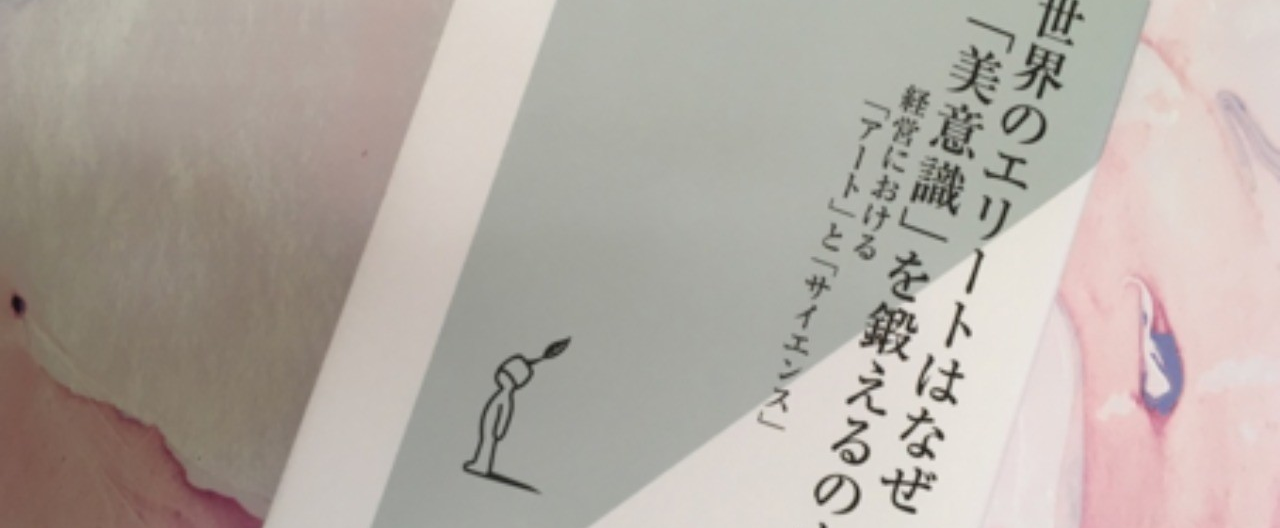 世界のエリートはなぜ
「美意識」を鍛えるの
経営における
「アート」と「サイエンス」